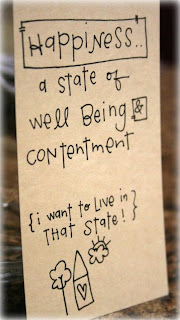 Happiness..
a state of
well Being &
contentment
{i want to Live in
That State!}